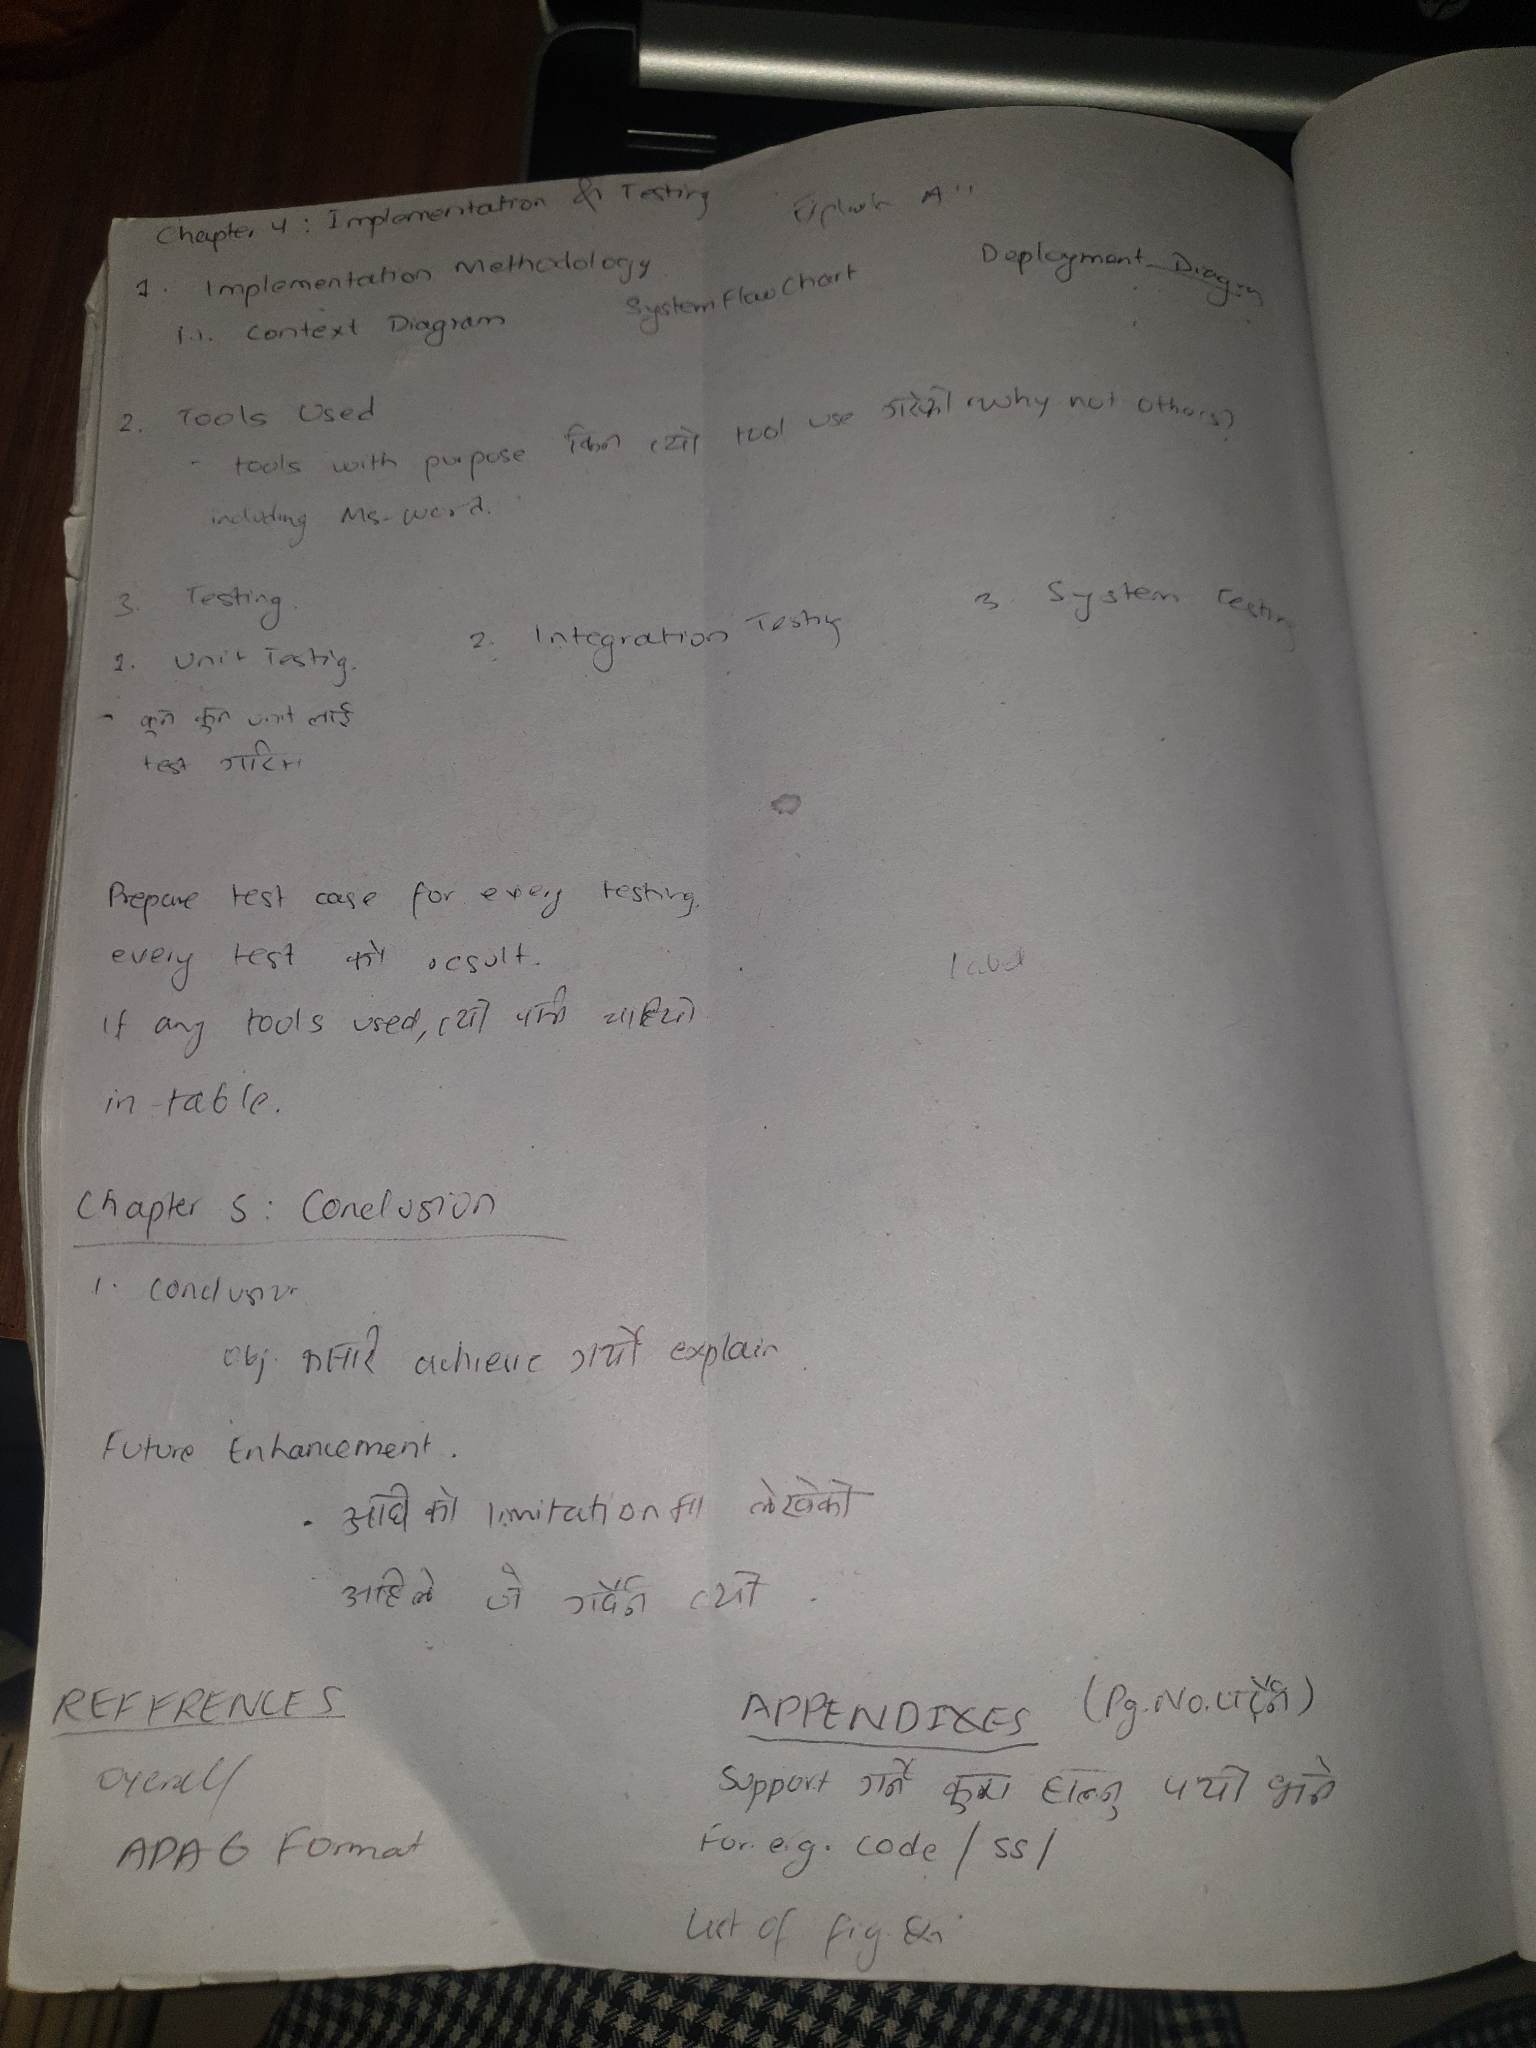 Chapter 4: Implementation & Testing
1. Implementation Methodology
1.1. Context Diagram System Flow Chart Deployment Diagram
2. Tools Used
- tools with purpose किन त्यो tool use गरेको (why not others)
including Ms-word.
3. Testing.
1. Unit Testig. 2. Integration Testing 3. System Testing
- कुन कुन unit लाई
test
Prepare test case for every testing.
every test को result.
if any tools used, त्यो पनि चाहियो
in table.
Chapter 5: Conclusion
1. Conclusion
Obj. कसरी achieve गर्यो explain
Future Enhancement.
• अघि को limitation मा लेखेको
अहिले जे गर्दैन त्यो.
REFFRENCES
overall
APA 6 Format
APPENDIXES (Pg. No. पर्दैन)
Support गर्ने कुरा हाल्नु पर्यो भने
For. e.g. code / ss /
List of fig.